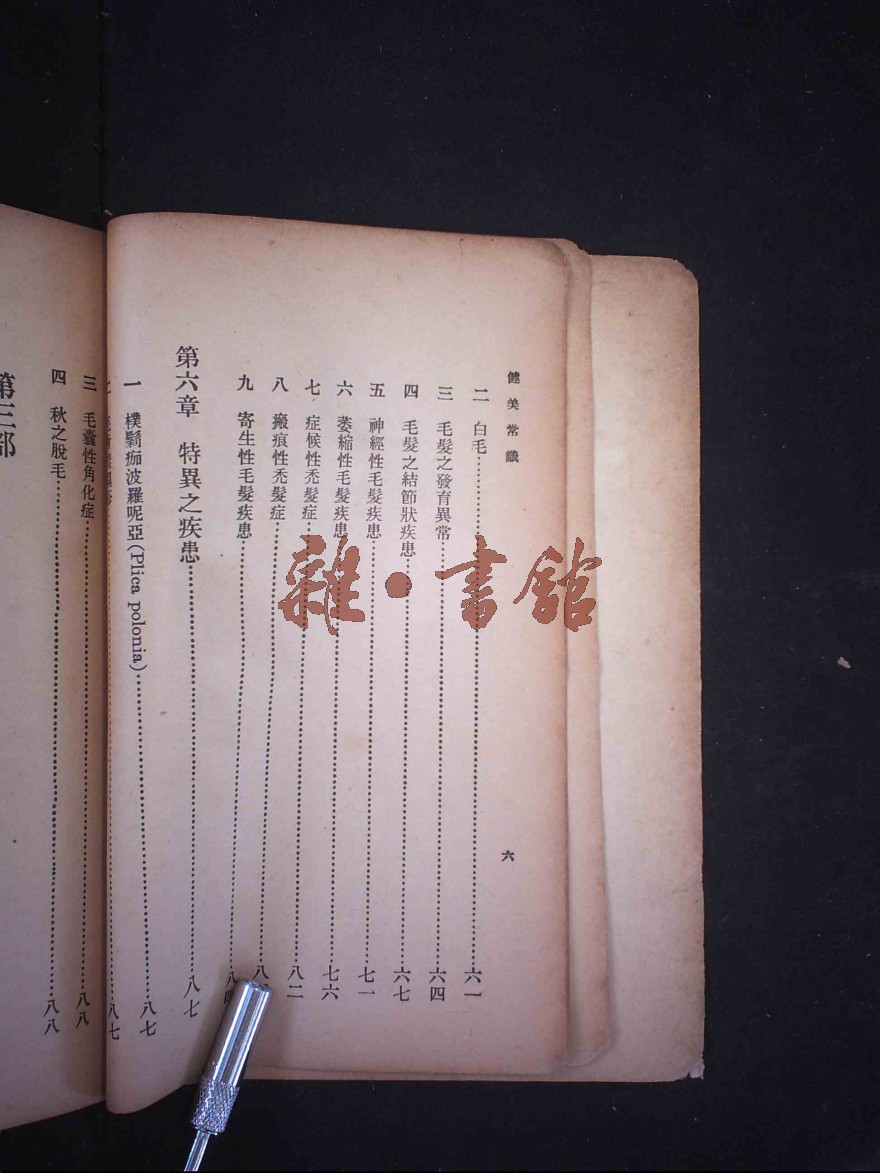 健美常識
六
二 白毛…………六一
三 毛髮之發育異常…………六四
四 毛髮之結節狀疾患…………六七
五 神經性毛髮疾患…………七一
六 萎縮性毛髮疾患…………七六
七 症候性禿髮症…………八二
八 瘢痕性禿髮症…………八
九 寄生性毛髮疾患…………八四
第六章 特異之疾患…………八七
一 樸鬎痂波羅呢亞(Plica polonia)…………八七
…………八七
三 毛囊性角化症…………八八
四 秋之脫毛…………八八
第三部
雜·書館